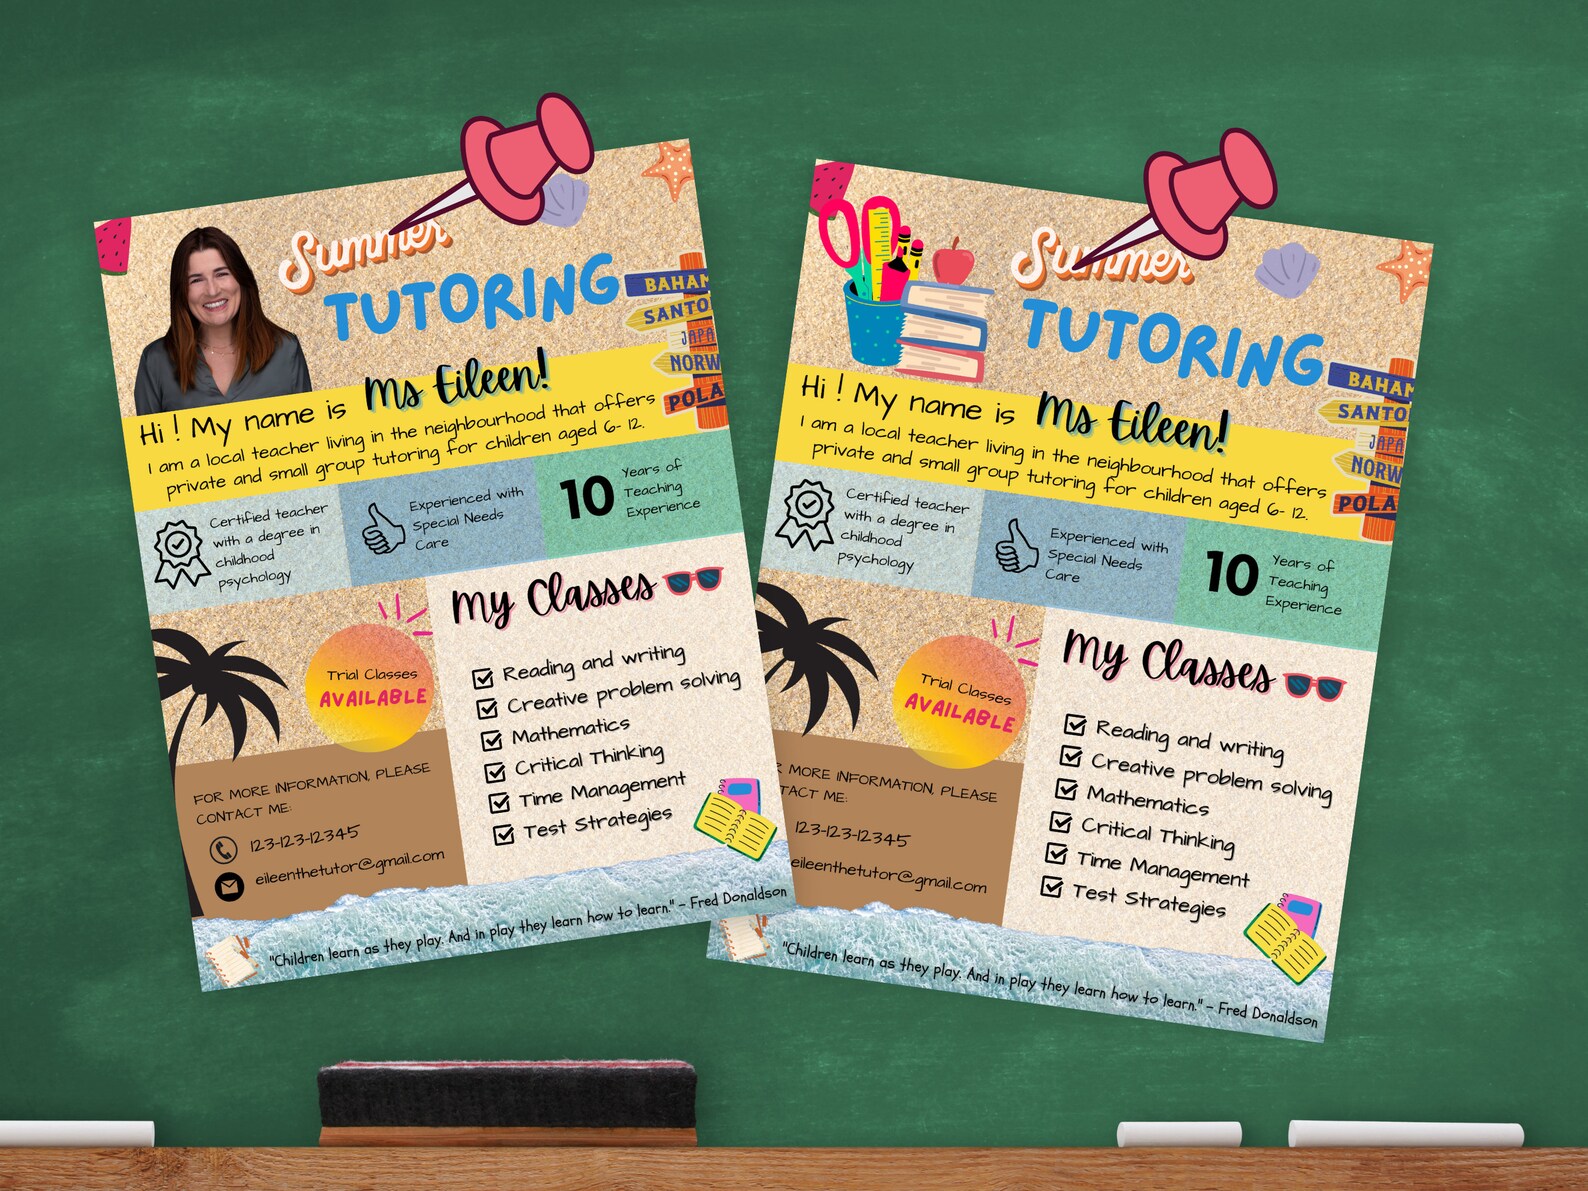 Summer
TUTORING
BAHAM
SANTO
JAPA
NORW
POLA
Hi ! My name is Ms Eileen!
I am a local teacher living in the neighbourhood that offers
private and small group tutoring for children aged 6- 12.
Certified teacher
with a degree in
childhood
psychology
Experienced with
Special Needs
Care
10
Years of
Teaching
Experience
My Classes
Trial Classes
AVAILABLE
Reading and writing
Creative problem solving
Mathematics
Critical Thinking
Time Management
Test Strategies
FOR MORE INFORMATION, PLEASE
CONTACT ME:
123-123-12345
eileenthetutor@gmail.com
"Children learn as they play. And in play they learn how to learn." - Fred Donaldson
Summer
TUTORING
BAHAM
SANTO
JAPA
NORW
POLA
Hi ! My name is Ms Eileen!
I am a local teacher living in the neighbourhood that offers
private and small group tutoring for children aged 6- 12.
Certified teacher
with a degree in
childhood
psychology
Experienced with
Special Needs
Care
10
Years of
Teaching
Experience
My Classes
Trial Classes
AVAILABLE
Reading and writing
Creative problem solving
Mathematics
Critical Thinking
Time Management
Test Strategies
R MORE INFORMATION, PLEASE
TACT ME:
123-123-12345
eileenthetutor@gmail.com
"Children learn as they play. And in play they learn how to learn." - Fred Donaldson